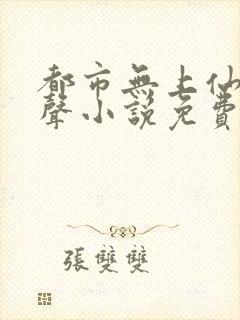 都市無上仙
聲小說免費
張雙雙